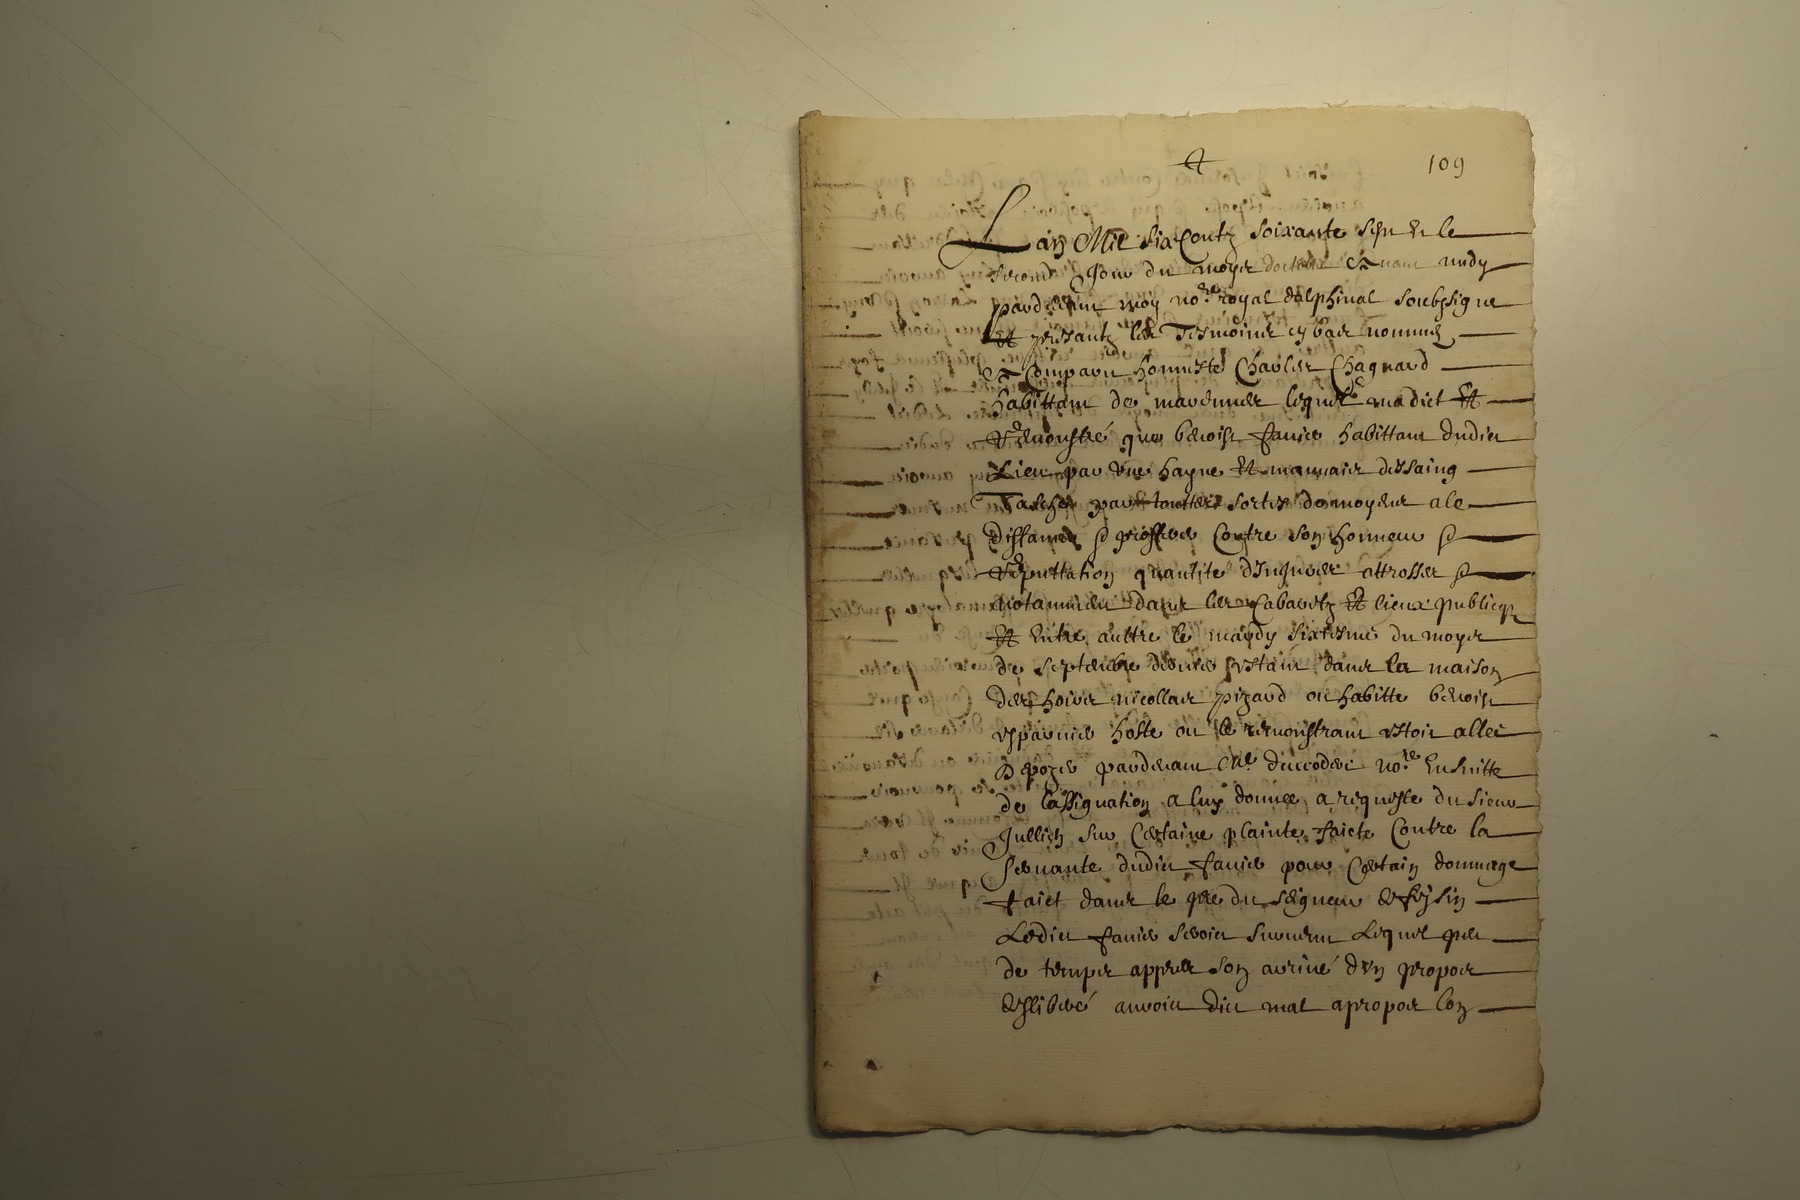 109
L an Mil six Centz soixante sept et le
second Jour du moys doctobre avant midy
pardevant moy no.re royal dalphinal soubsigne
et presantz les Tesmoins cy bas nommes
a Comparu honneste Charles Chagnard
habittant de marennes lequel ma dict et
remonstré que benoist favier habittant dudict
Lieu par une hayne et mauvais dessaing
Tasche par touttes sortes de moyens a le
diffamer & proferer Contre son honneur &
reputtation quantite dinjures attrosses &
notamment dans les Cabaretz et lieux publicqz
et Entre aultre le mardy sixiesme du moys
de septembre dernier estant dans la maison
des hoirs nicollas pizard ou habitte benoist
hoste ou le remonstrant estoit aller
depozer pardevant Me no.re Ensuitte
de lassignation a luy donnee a requeste du sieur
Jullien sur Certaine plainte faicte Contre la
servante dudict favier pour Certain dommage
faict dans le pre du seigneur de feysin
Ledict favier seroict survenu Lequel peu
de temps appres son arrivé dun propos
desliberé auroict dict mal a propos lon